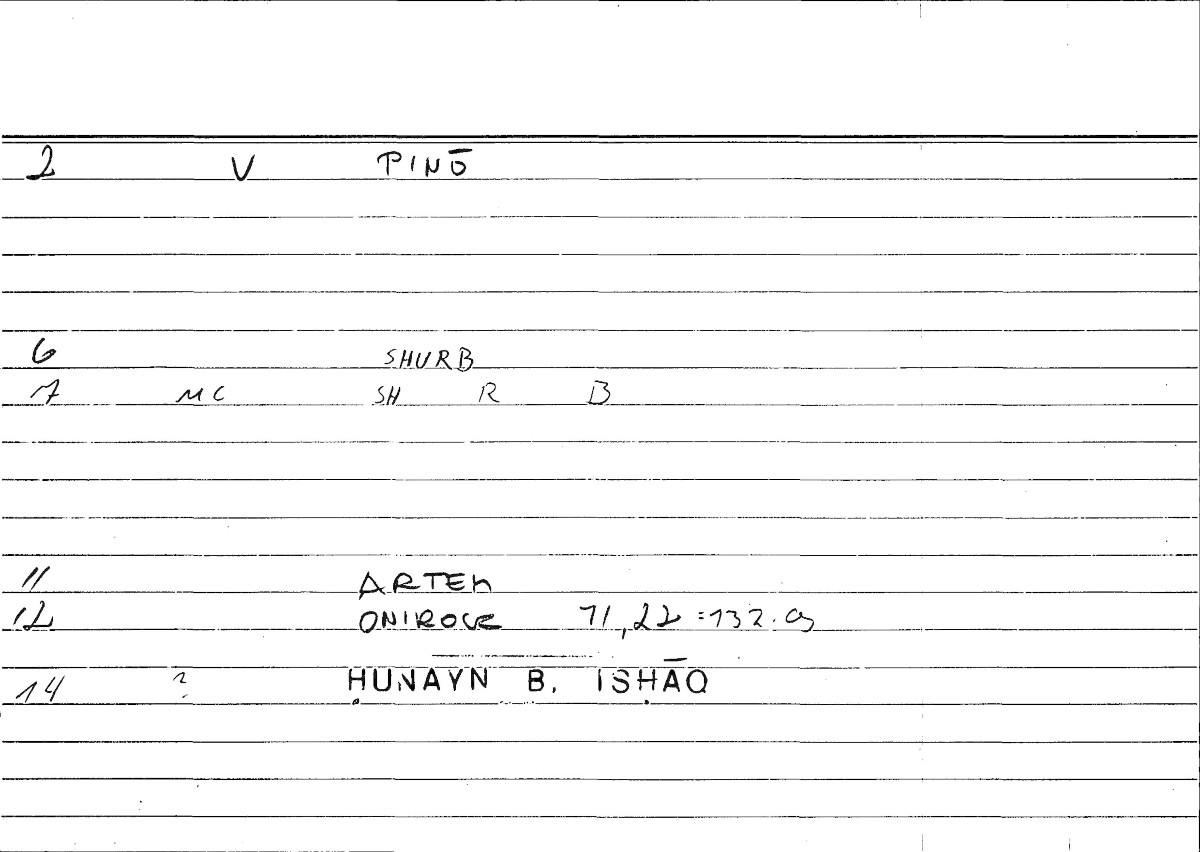 2 V PINŌ
6 SHURB
7 MC SH R B
11 ARTEM
12 ONIROCR 71,22 =132.
14 ? ḤUNAYN B. ISḤĀQ